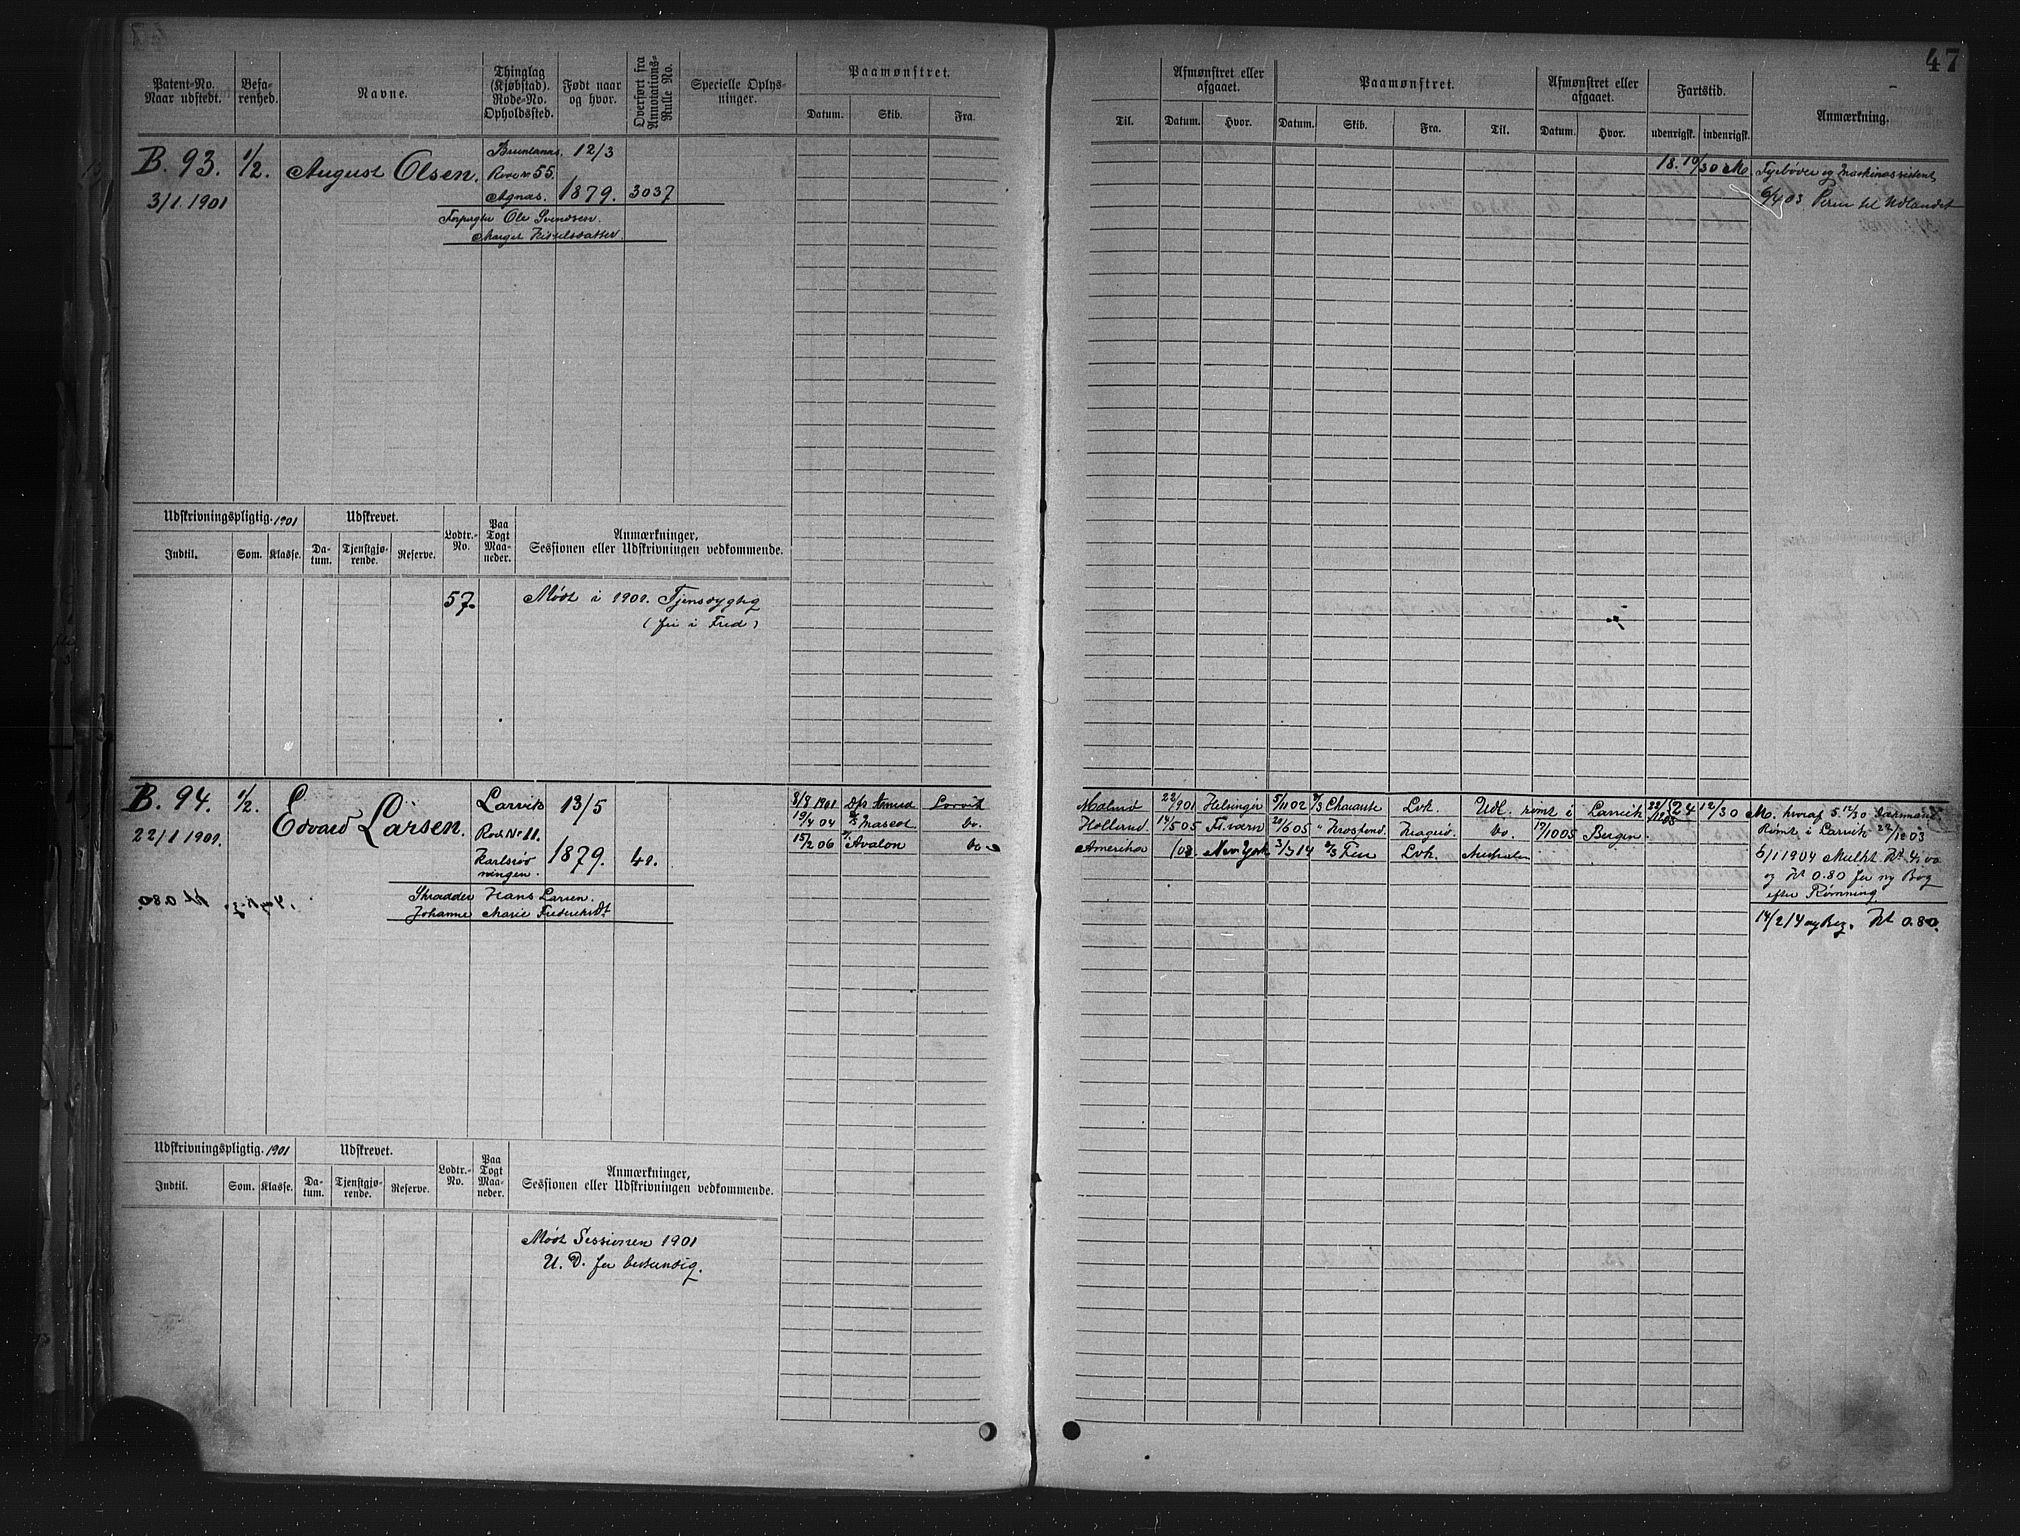 47
Patent-No. Naar udstedt.
Befa-renhed.
Navne.
Thinglag (Kjøbstad). Rode-No. Opholdssted.
Født naar og hvor.
Overført fra Annotations-Rulle No.
Specielle Oplys-ninger.
Paamønstret.
Datum. Skib. Fra.
Til.
Afmønstret eller afgaaet.
Datum. Hvor.
Paamønstret.
Datum. Skib. Fra. Til.
Afmønstret eller afgaaet.
Datum. Hvor.
Fartstid.
udenrigsk. indenrigsk.
Anmærkning.
B. 93. 1/2. August Olsen.
3/1 1901
Brunlanæs. 12/3
Rode N 55.
Agnæs. 1879. 3037
Ole Svendsen.
18. 10/30 M. Fyrbøder og Maskinassistent
6/4 03 Permi til Udlandet
Udskrivningspligtig. 1901
Udskrevet.
Indtil. Som. Klasse. Da-tum. Tjenstgjø-rende. Reserve. Lodtr.-No. Paa Togt Maa-neder.
Anmærkninger,
Sessionen eller Udskrivningen vedkommende.
57. Mødt i 1901. Tjensdygtig
(fri i Fred)
B. 94. 1/2. Edvard Larsen.
22/1 1901.
Larvik 13/5
Rode No 11.
1879. 41.
Skrædder Hans Larsen.
Johanne Marie
8/8 1901 Larvik
19/4 04 Mascot do.
15/2 06 Avalon do
Malmø 22/901 Helsingør 5/11 02 Lvk. Udl. rømt i Larvik 22/12 03 24 12/30 M. hvoraf 5. 12/30
Holland 14/5 05 Fr.værn 20/6 05 Kragerø do. 17/10 05 Bergen.
Rømt i Larvik 22/12 03
Amerika New York 3/3 14 Fen Lvk. Australien
5/1 1904 Mulkt Kr 4,00
og Kr 0.80 for ny Bog
efter Rømning
14/2 14 ny Bog. Kr 0.80.
Udskrivningspligtig. 1901
Udskrevet.
Indtil. Som. Klasse. Da-tum. Tjenstgjø-rende. Reserve. Lodtr.-No. Paa Togt Maa-neder.
Anmærkninger,
Sessionen eller Udskrivningen vedkommende.
Mødt Sessionen 1901
U. D. for bestandig.